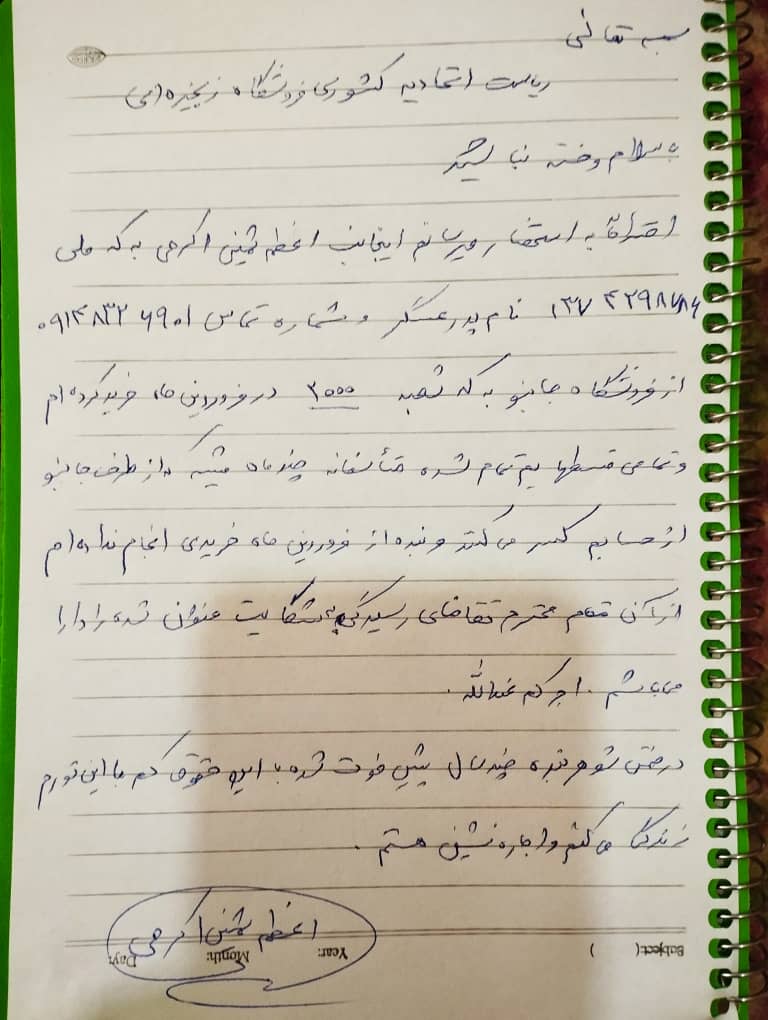 بسمه تعالی
ریاست اتحادیه کشوری فروشگاه زنجیره ای
با سلام و خسته نباشید
احتراماً به استحضار میرسانم اینجانب اعظم ثمنی اکرمی به کد ملی
نام پدر عسگر و شماره تماس
از فروشگاه جانبو به کد شعبه ۲۰۰۰ در فروردین ماه خرید کرده ام
و تمامی قسطهایم تمام شده متأسفانه چند ماه میشه که از طرف جانبو
از حسابم کسر می کنند و بنده از فروردین ماه خریدی انجام نداده ام
از آن مقام محترم تقاضای رسیدگی به شکایت عنوان شده را دارا
می باشم . اجرکم عندالله .
در ضمن شوهر بنده چند سال پیش فوت شده با این حقوق کم با این تورم
زندگی می کنم و اجاره نشین هستم .
اعظم ثمنی اکرمی
Subject: ( )
Year: Month: Day: